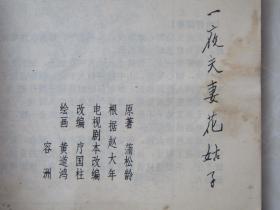 一夜夫妻花姑子
原著 蒲松龄
根据赵大年
电视剧本改编
改编 疗国柱
绘画 黄道鸿
容洲